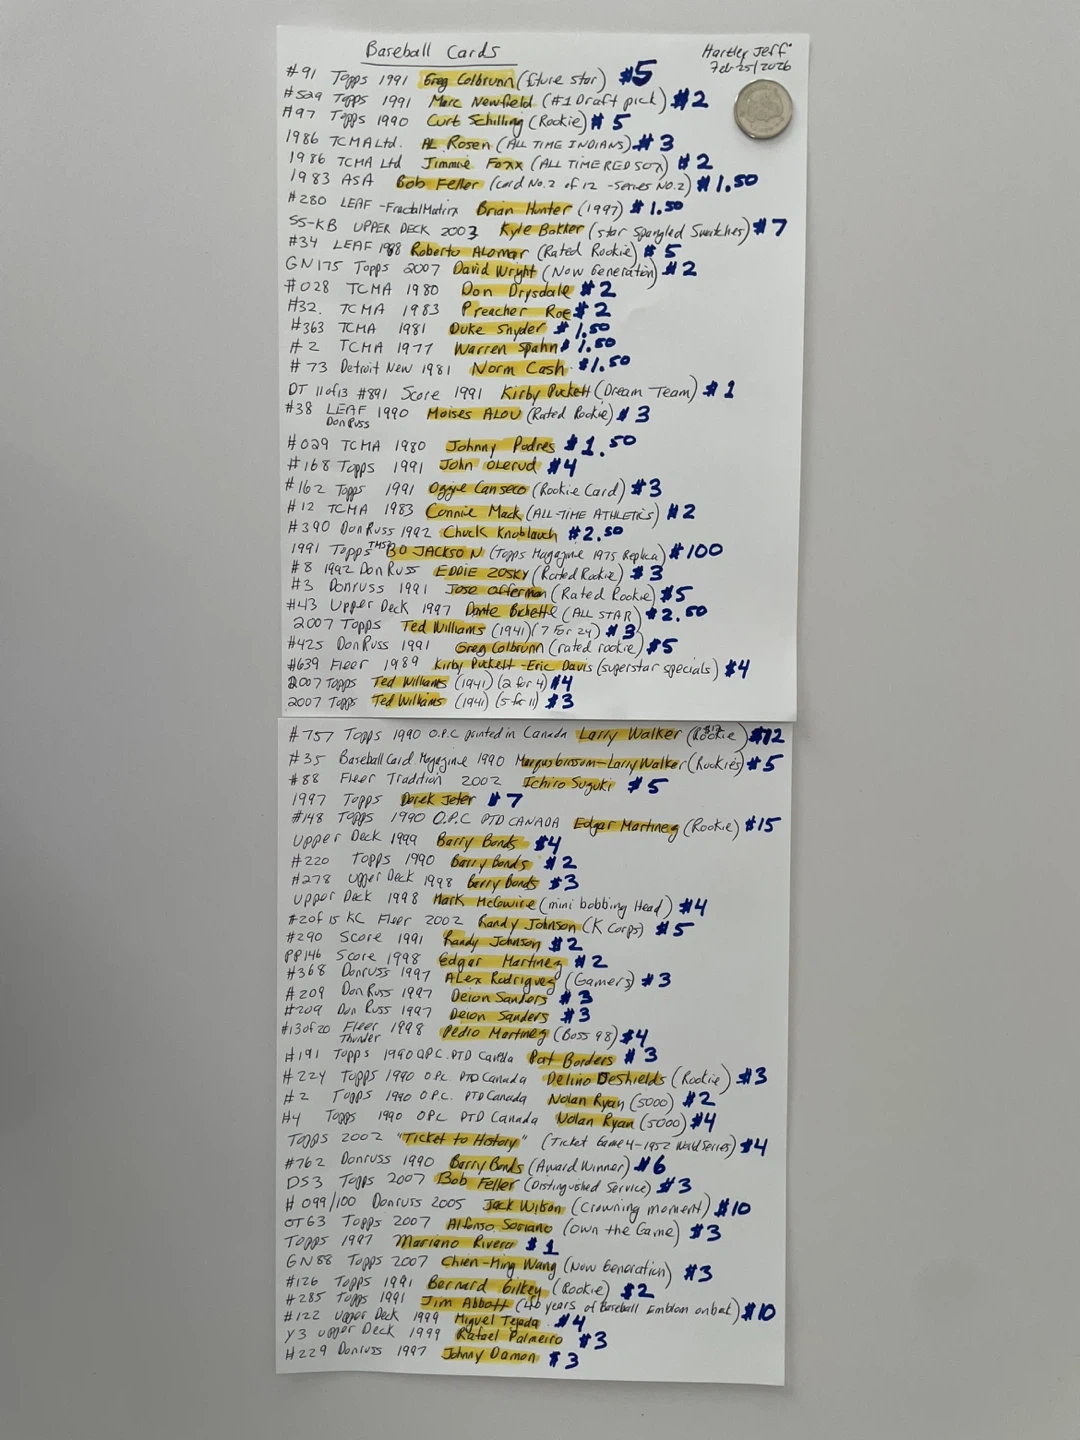 Baseball Cards
Hartley Jeff
Feb-25/2026
#91 Topps 1991 Greg Colbrunn (future star) $5
#529 Topps 1991 Marc Newfield (#1 Draft pick) $2
#97 Topps 1990 Curt Schilling (Rookie) $5
1986 TCMA Ltd. AL Rosen (ALL TIME INDIANS) $3
1986 TCMA Ltd Jimmie Foxx (ALL TIME RED SOX) $2
1983 ASA Bob Feller (card No.2 of 12 -Series No.2) $1.50
#280 LEAF -Fractal Matrix Brian Hunter (1997) $1.50
SS-KB UPPER DECK 2003 Kyle Bakker (star Spangled Swatches) $7
#34 LEAF 1988 Roberto ALomar (Rated Rookie) $5
GN175 Topps 2007 David Wright (Now Generation) $2
#028 TCMA 1980 Don Drysdale $2
#32. TCMA 1983 Preacher Roe $2
#363 TCMA 1981 Duke Snyder $1.50
#2 TCMA 1977 Warren Spahn $1.50
#73 Detroit New 1981 Norm Cash $1.50
DT 11 of 13 #891 Score 1991 Kirby Puckett (Dream Team) $1
#38 LEAF 1990 Moises ALOU (Rated Rookie) $3
DonRuss
#029 TCMA 1980 Johnny Podres $1.50
#168 Topps 1991 John OLerud $4
#162 Topps 1991 Ozzie Canseco (Rookie Card) $3
#12 TCMA 1983 Connie Mack (ALL-TIME ATHLETICS) $2
#390 DonRuss 1992 Chuck Knoblauch $2.50
1991 Topps BO JACKSON (Topps Magazine 1975 Replica) $100
#8 1992 DonRuss EDDIE ZOSKY (Rated Rookie) $3
#3 Donruss 1991 Jose Offerman (Rated Rookie) $5
#43 Upper Deck 1997 Dante Bichette (ALL STAR) $2.50
2007 Topps Ted Williams (1941) (7 for 24) $3
#425 DonRuss 1991 Greg Colbrunn (rated rookie) $5
#639 Fleer 1989 Kirby Puckett -Eric Davis (superstar specials) $4
2007 Topps Ted Williams (1941) (2 for 4) $4
2007 Topps Ted Williams (1941) (5 for 11) $3
#757 Topps 1990 O.P.C printed in Canada Larry Walker (Rookie) $12
#35 Baseball Card Magazine 1990 Marquis Grissom-Larry Walker (Rookies) $5
#88 Fleer Tradition 2002 Ichiro Suzuki $5
1997 Topps Derek Jeter $7
#148 Topps 1990 O.P.C PTD CANADA Edgar Martinez (Rookie) $15
Upper Deck 1999 Barry Bonds $4
#220 Topps 1990 Barry Bonds $2
#278 Upper Deck 1998 Barry Bonds $3
Upper Deck 1998 Mark McGwire (mini bobbing Head) $4
#2 of 15 KC Fleer 2002 Randy Johnson (K Corps) $5
#290 Score 1991 Randy Johnson $2
PP146 Score 1998 Edgar Martinez $2
#368 Donruss 1997 ALex Rodriguez (Gamers) $3
#209 DonRuss 1997 Deion Sanders $3
#209 Don Russ 1997 Deion Sanders $3
#13 of 20 Fleer 1998 Pedro Martinez (Boss 98) $4
Thunder
#191 Topps 1990 OPC. PTD Canada Pat Borders $3
#224 Topps 1990 OPC PTD Canada Delino DeShields (Rookie) $3
#2 Topps 1990 OPC. PTD Canada Nolan Ryan (5000) $2
#4 Topps 1990 OPC PTD Canada Nolan Ryan (5000) $4
Topps 2002 "Ticket to History" (Ticket Game 4-1952 World Series) $4
#762 Donruss 1990 Barry Bonds (Award Winner) $6
DS3 Topps 2007 Bob Feller (Distinguished Service) $3
#099/100 Donruss 2005 Jack Wilson (Crowning moment) $10
OTG3 Topps 2007 Alfonso Soriano (Own the Game) $3
Topps 1997 Mariano Rivera $1
GN88 Topps 2007 Chien-Ming Wang (Now Generation) $3
#126 Topps 1991 Bernard Gilkey (Rookie) $2
#285 Topps 1991 Jim Abbott (40 years of Baseball Emblem on bat) $10
#122 Upper Deck 1999 Miguel Tejada $4
Y3 upper Deck 1999 Rafael Palmeiro $3
#229 Donruss 1997 Johnny Damon $3